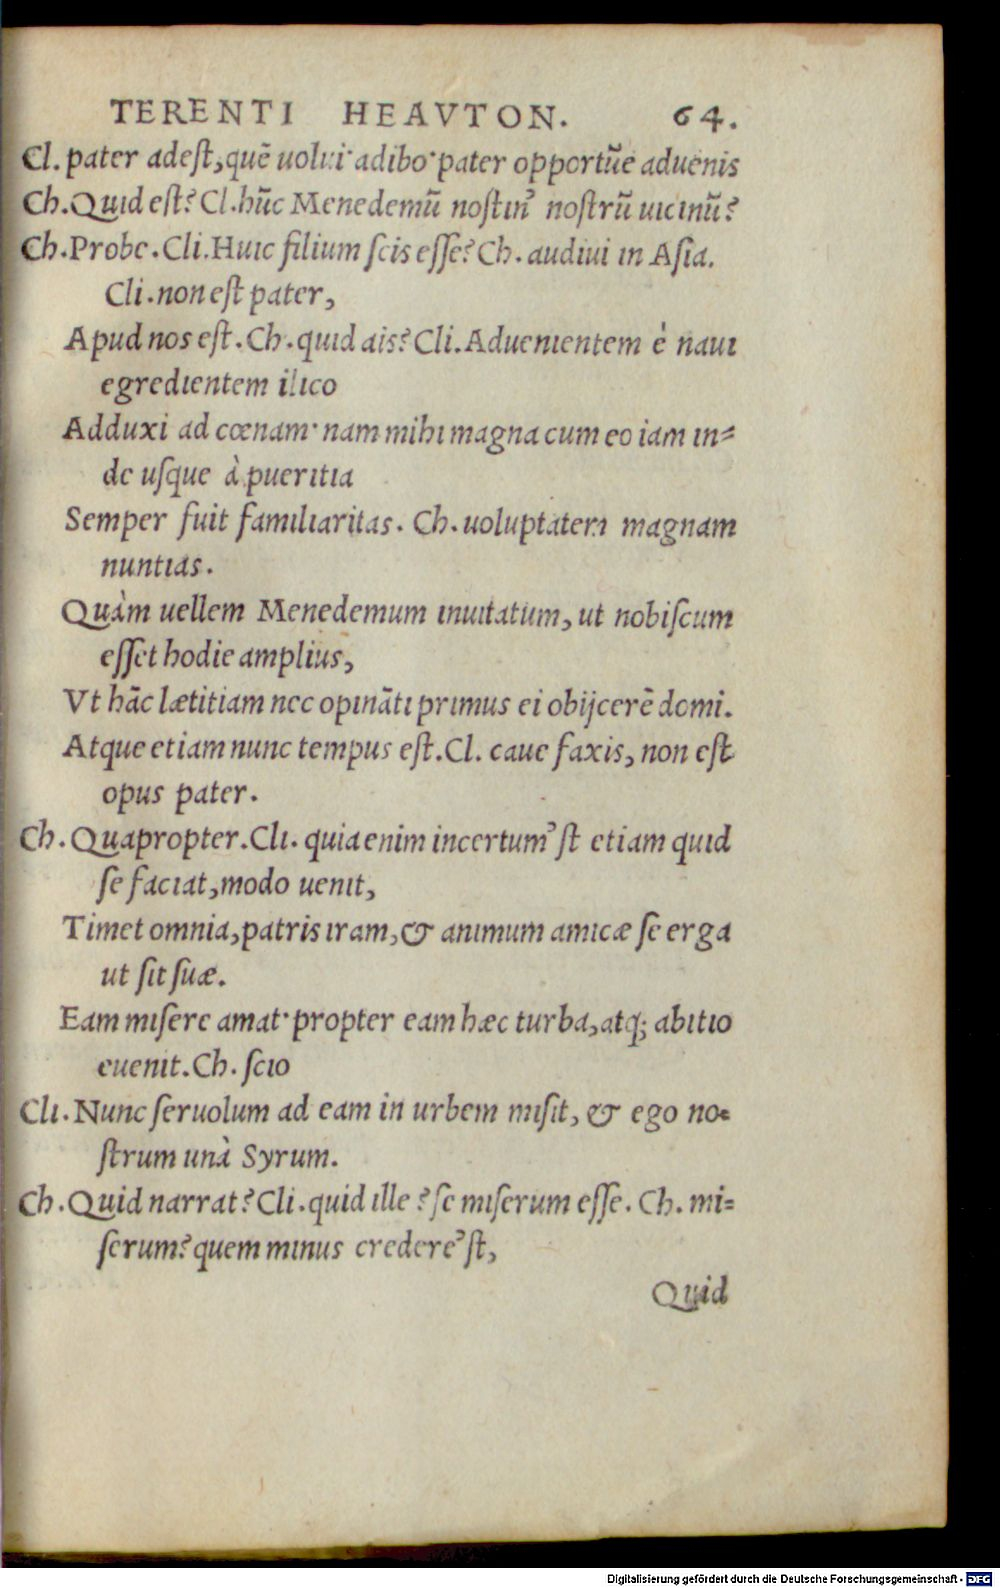 TERENTI HEAVTON. 64.
Cl. pater adest, quē uolui· adibo· pater opportūe aduenis
Ch. Quid est? Cl. hūc Menedemū nostin' nostrū uicinū?
Ch. Probe. Cli. Huic filium scis esse? Ch. audiui in Asia.
Cli. non est pater,
Apud nos est. Ch. quid ais? Cli. Aduenientem è naui
egredientem ilico
Adduxi ad cœnam· nam mihi magna cum eo iam in=
de usque à pueritia
Semper fuit familiaritas. Ch. uoluptatem magnam
nuntias.
Quàm uellem Menedemum inuitatum, ut nobiscum
esset hodie amplius,
Vt hāc lætitiam nec opināti primus ei obijcerē domi.
Atque etiam nunc tempus est. Cl. caue faxis, non est
opus pater.
Ch. Quapropter. Cli. quia enim incertum'st etiam quid
se faciat, modo uenit,
Timet omnia, patris iram, & animum amicæ se erga
ut sit suæ.
Eam misere amat· propter eam hæc turba, atq; abitio
euenit. Ch. scio
Cli. Nunc seruolum ad eam in urbem misit, & ego no=
strum unà Syrum.
Ch. Quid narrat? Cli. quid ille? se miserum esse. Ch. mi=
serum? quem minus credere'st,
Quid
Digitalisierung gefördert durch die Deutsche Forschungsgemeinschaft - DFG